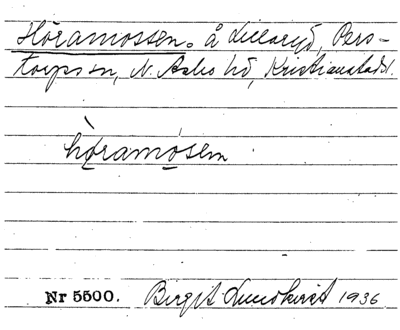 Höramossen. å Lillaryd, Pers-
torps sn, N. Åsbo hd, Kristianstads l.
hòramósen
Nr 5500. Birgit Lundkvist 1936